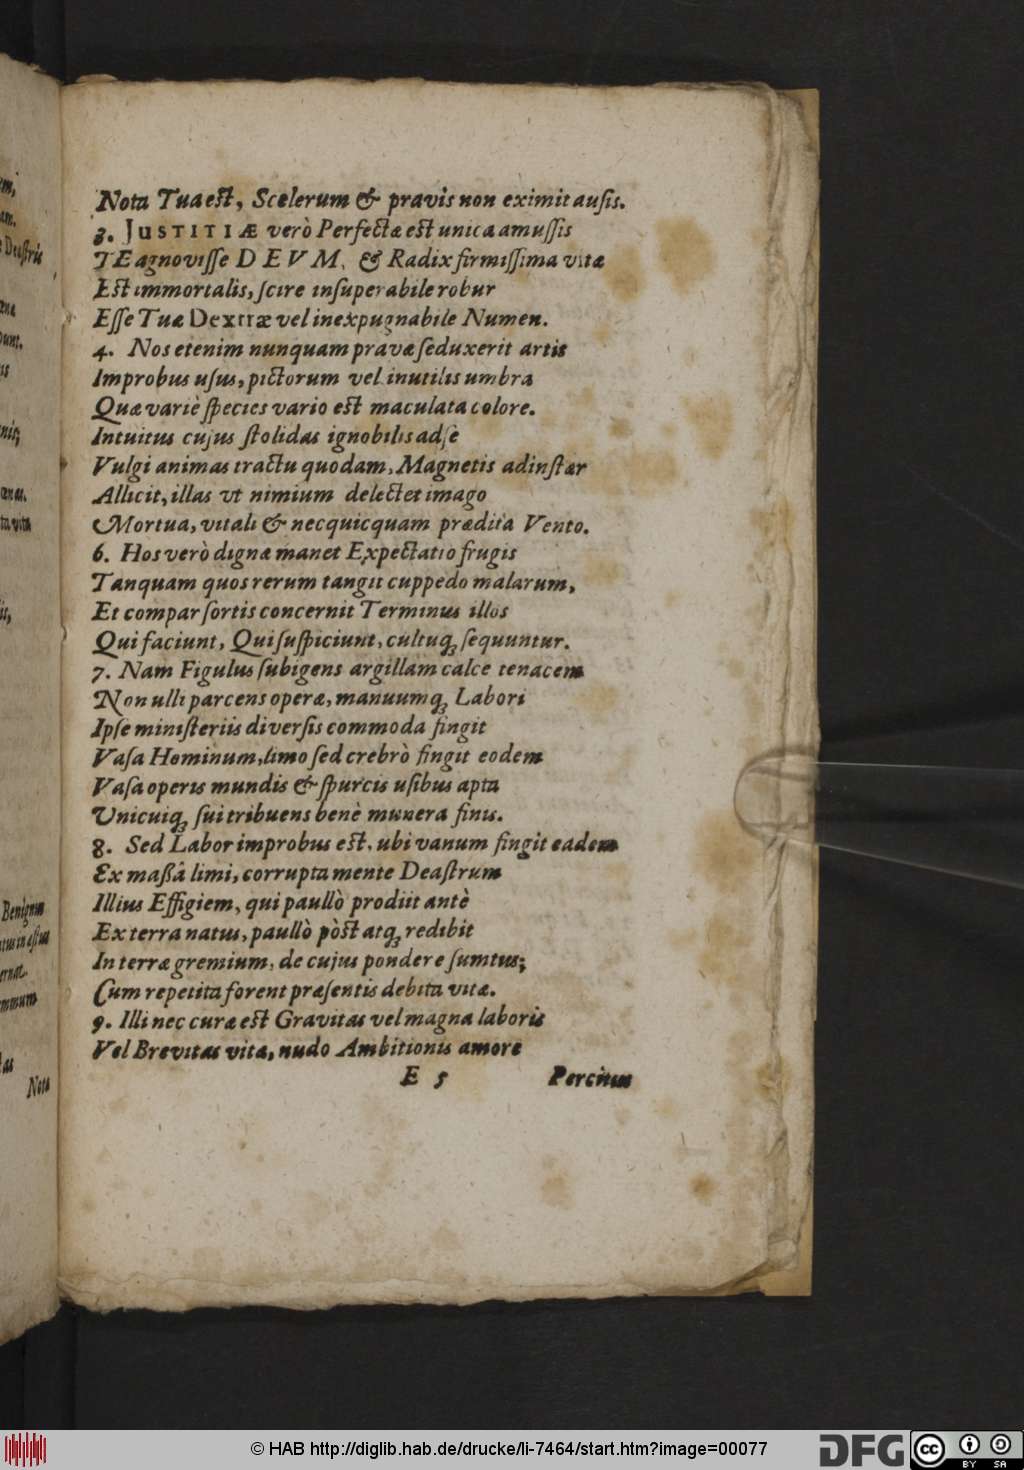 Nota Tua eſt, Scelerum & pravis non eximit auſis.
3. JUSTITIÆ verò Perfecta eſt unica amuſſis
TE agnoviſſe DEVM, & Radix firmiſſima vitæ
Eſt immortalis, ſcire inſuperabile robur
Eſſe Tuæ Dextræ vel inexpugnabile Numen.
4. Nos etenim nunquam pravæ ſeduxerit artis
Improbus uſus, pictorum vel inutilis umbra
Quæ variè ſpecies vario eſt maculata colore.
Intuitus cujus ſtolidas ignobilis adſe
Vulgi animas tractu quodam, Magnetis adinſtar
Allicit, illas vt nimium delectet imago
Mortua, vitali & necquicquam prædita Vento.
6. Hos verò digna manet Expectatio frugis
Tanquam quos rerum tangit cuppedo malarum,
Et compar ſortis concernit Terminus illos
Qui faciunt, Qui ſuſpiciunt, cultuq; ſequuntur.
7. Nam Figulus ſubigens argillam calce tenacem
Non ulli parcens operæ, manuumq; Labori
Ipſe miniſteriis diverſis commoda fingit
Vaſa Hominum, limo ſed crebrò fingit eodem
Vaſa operis mundis & ſpurcis uſibus apta
Unicuiq; ſui tribuens benè munera finis.
8. Sed Labor improbus eſt, ubi vanum fingit eadem
Ex maßâ limi, corrupta mente Deaſtrum
Illius Effigiem, qui paullò prodiit antè
Ex terra natus, paullò pòſt atq; redibit
In terræ gremium, de cujus pondere ſumtus;
Cum repetita forent præſentis debita vitæ.
9. Illi nec curæ eſt Gravitas vel magna laboris
Vel Brevitas vitæ, nudo Ambitionis amore
E 5 Percitus
Benignum
Nota
© HAB http://diglib.hab.de/drucke/li-7464/start.htm?image=00077
DFG
cc BY SA